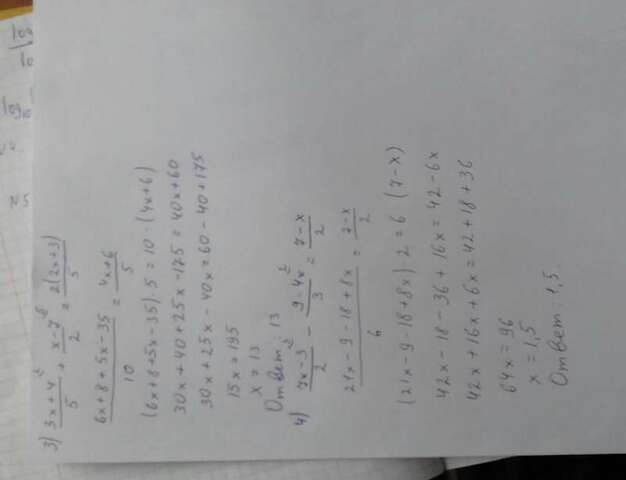 3) (3x+4)/5 + (x-7)/2 = 2(2x+3)/5
(6x+8+5x-35)/10 = (4x+6)/5
(6x+8+5x-35)·5=10·(4x+6)
30x+40+25x-175=40x+60
30x+25x-40x=60-40+175
15x=195
x=13
Ответ: 13
4) (7x-3)/2 - (9-4x)/3 = (7-x)/2
(21x-9-18+8x)/6 = (7-x)/2
(21x-9-18+8x)2=6 (7-x)
42x-18-36+16x=42-6x
42x+16x+6x=42+18+36
64x=96
x=1,5
Ответ: 1,5.